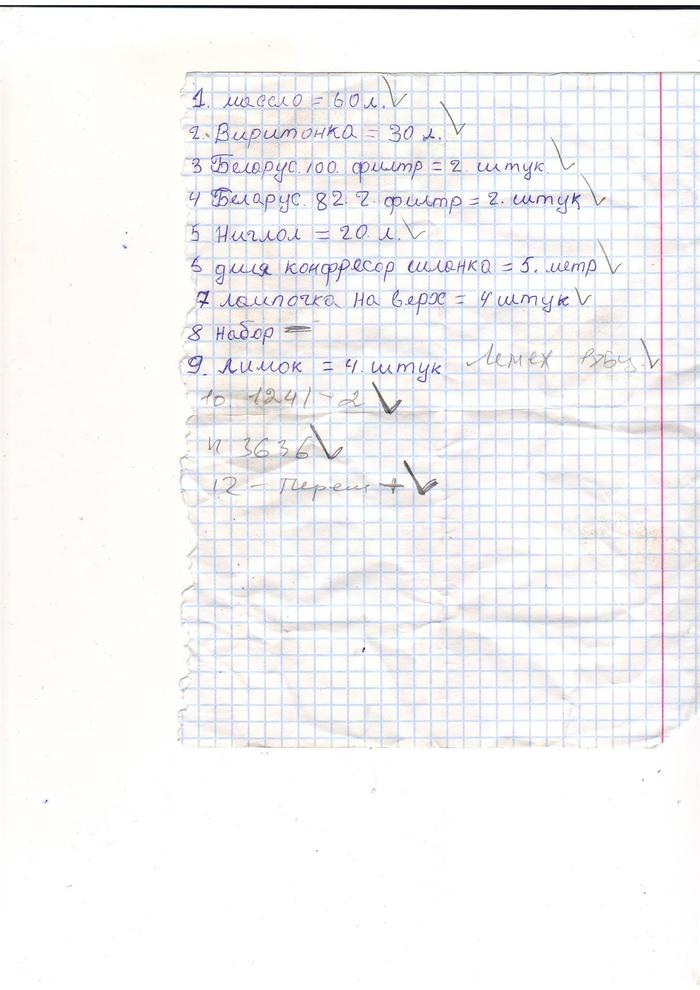 1. массло = 60 л.
2. Виритонка = 30 л.
3 Беларус. 100. филтр = 2. штук.
4 Беларус. 82. 2. филтр = 2. штук
5 Ниглол = 20. л.
6 диля конфресор шланка = 5. метр
7 лампочка на верх = 4 штук
8 набор
9. лимок = 4. штук Лемех
10. 1241 - 2
11 3636
12 -